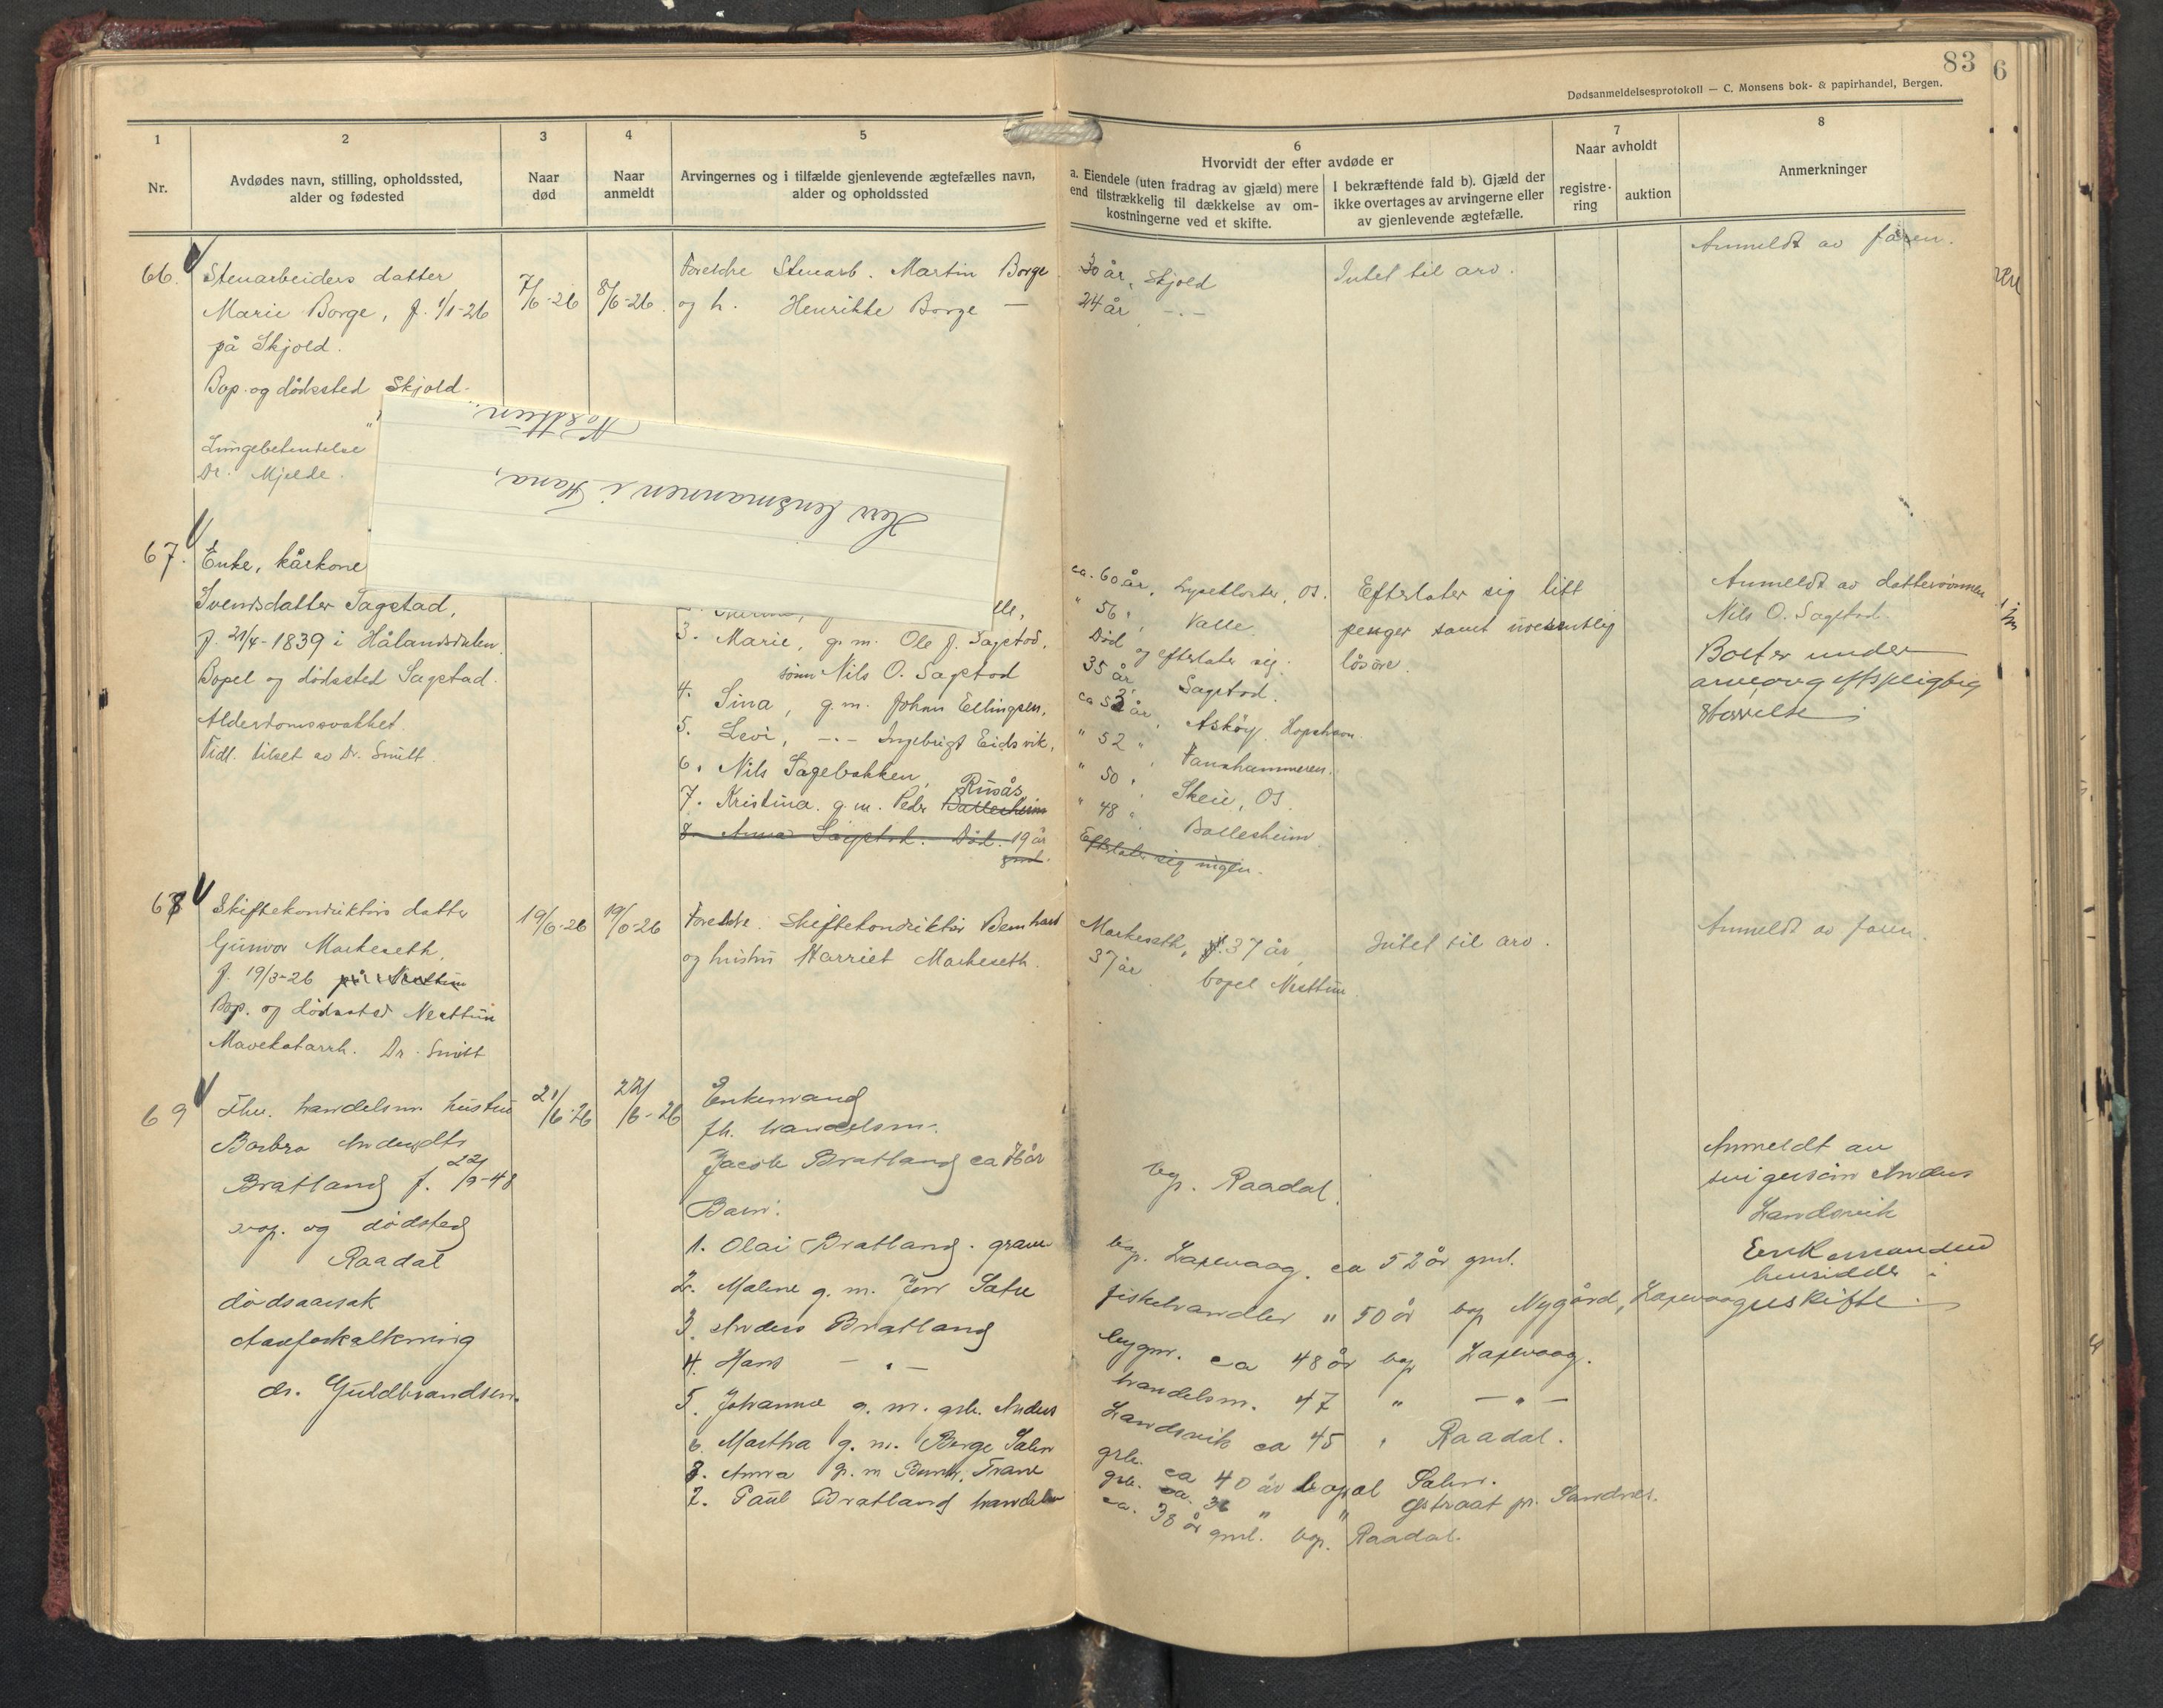 83
6
Dødsanmeldelsesprotokoll — C. Monsens bok- & papirhandel, Bergen.
1
Nr.
2
Avdødes navn, stilling, opholdssted,
alder og fødested
3
Naar
død
4
Naar
anmeldt
5
Arvingernes og i tilfælde gjenlevende ægtefælles navn,
alder og opholdssted
6
Hvorvidt der efter avdøde er
a. Eiendele (uten fradrag av gjæld) mere
end tilstrækkelig til dækkelse av om-
kostningerne ved et skifte.
I bekræftende fald b). Gjæld der
ikke overtages av arvingerne eller
av gjenlevende ægtefælle.
7
Naar avholdt
registre-
ring
auktion
8
Anmerkninger
66.
Stenarbeiders datter
Marie Borge, f. 1/1-26
på Skjold.
Bop. og dödssted Skjold.
Lungebetendelse
Dr. Mjelde.
7/6-26
8/6-26.
Foreldre Stenarb. Martin Borge
og h. Henrikke Borge —
30 år, Skjold
24 år —.—
Intet til arv.
Anmeldt av faren.
Herr Lensmannen i Fana,
Nesttun.
67.
Enke, kårkone
Svendsdatter Sagstad,
f. 21/4-1839 i Hålandsdalen.
Bopel og dödssted Sagstad.
Alderdomssvakhet.
Tidl. tilset av Dr. Smitt.
3. Marie, g.m. Ole J. Sagstad,
sönn Nils O. Sagstad
4. Sina, g.m. Johan Ellingsen,
5. Levi, —.— Ingebrigt Eidsvik,
6. Nils Sagebakken,
Rusås
7. Kristina g.m. Peder Ballesheim
8. Anna Sagstad. Död. 19 år
gml.
ca. 60 år, Lysekloster, Os.
" 56 " Valle.
Död og efterlater sig:
35 år Sagstad.
ca 53 år, Asköy. Hopshavn.
" 52 " Fanahammeren.
" 50 " Skeie, Os.
" 48 " Ballesheim
Efterlater sig ingen.
Efterlater sig litt
penger samt uvesentlig
lösöre.
Anmeldt av dattersönnen
Nils O. Sagstad.
Boet er under
68
Skiftekonduktörs datter
Gunvor Markeseth,
f. 19/3-26 på Nesttun
Bop. og dödssted Nesttun
Mavekatarrh. Dr. Smitt
19/6-26
19/6-26
Foreldre: Skiftekonduktör Bernhard
og hustru Harriet Markeseth.
Markeseth, 37 år,
37 år bopel Nesttun.
Intet til arv.
Anmeldt av faren.
69
Fhv. handelsm. hustru
Barbra Andersdtr
Bratland f. 22/9-48
bop. og dödsted
Raadal
dödsaarsak
Aareforkalkning
dr. Guldbrandsen.
21/6-26
22/6-26
Enkemand
fh. handelsm.
Jacob Bratland ca 76 år
Barn:
1. Olai Bratland.
2. Malene g.m.
3. Anders Bratland
4. Hans — " —
5. Johanna g.m. grb. Anders
6. Martha g.m. Berge Salen
8. Anna g.m. Trane
7. Paul Bratland handelsm
bop. Raadal.
bop. Laxevaag. ca 52 år gml.
fiskehandler " 50 år bop Nygård, Laxevaag
bygm. ca 48 år bop Laxevaag.
handelsm. 47 " — " —
Landsvik ca 45 " Raadal.
grb. ca 40 år bopæl Salen.
grb. ca. 36 " " pr. Sandnes.
ca. 38 år gml. bop. Raadal.
Anmeldt av
svigersön Anders
Landsvik
Enkemanden
hensidder i
uskifte.